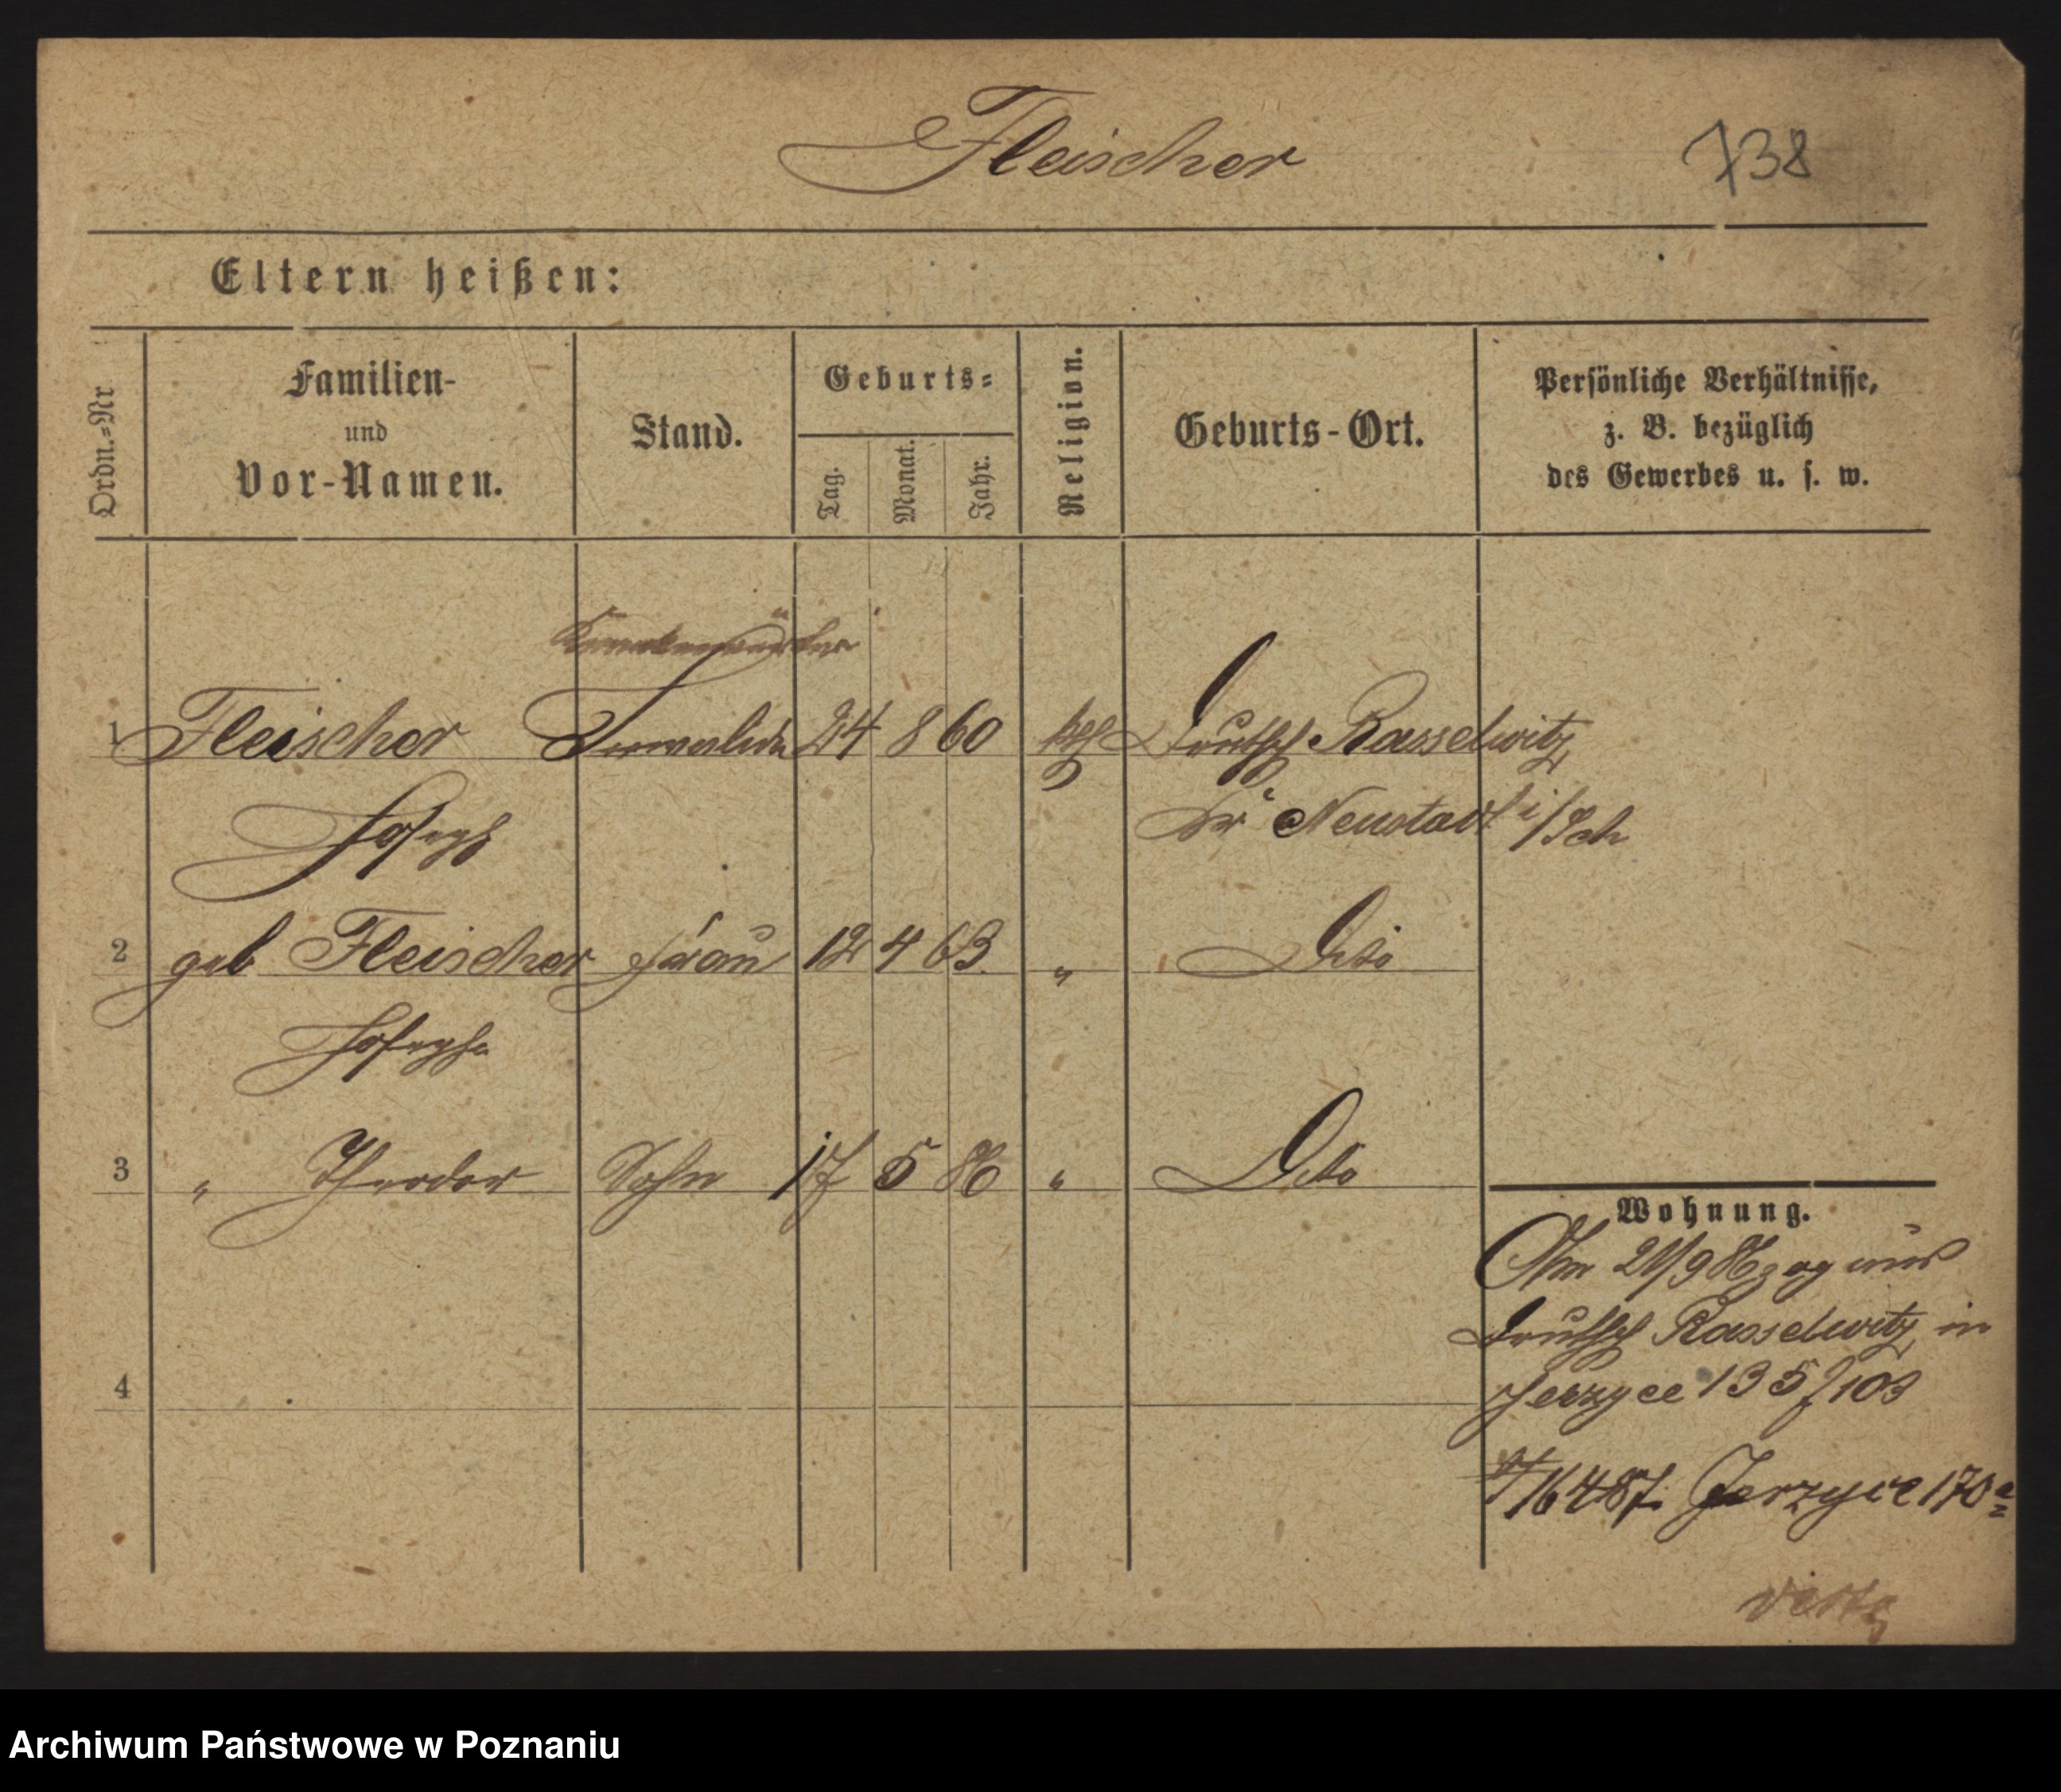 Fleischer
738
Eltern heißen:
Ordn.=Nr
Familien-
und
Vor-Namen.
Stand.
Geburts=
Tag.
Monat.
Jahr.
Religion.
Geburts-Ort.
Persönliche Verhältnisse,
z. B. bezüglich
des Gewerbes u. s. w.
Krankenwärter
1 Fleischer Invalide 24 8 60 kth Deutsch Rasselwitz
Joseph Kr Neustadt i/Sch
2 geb Fleischer Frau 12 4 63 " Dito
Josepha
3 " Theodor Sohn 17 5 86 " Dito
Wohnung.
Am 21/9 86 zog aus
Deutsch Rasselwitz in
Jerzyce 135 f 103
4
16 4 87. Jerzyce 170a
Archiwum Państwowe w Poznaniu